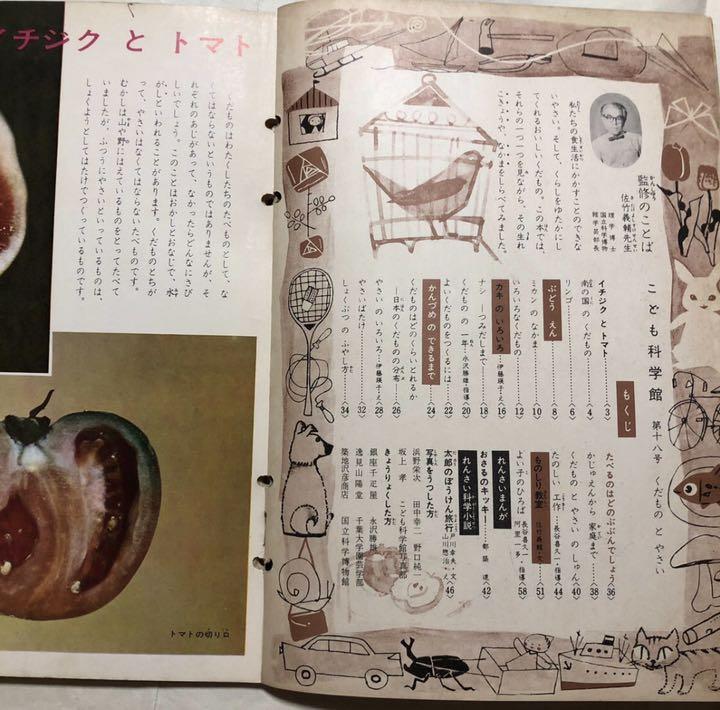 イチジク と トマト
くだものはわたくしたちのたべものとして、な
くてはならないというものではありませんが、そ
れぞれのあじがあって、なかったらどんなにさび
しいでしょう。このことはおかしとおなじで、水
がしといわれることがあります。くだものとちが
って、やさいはなくてはならないたべものです。
むかしは山や野にはえているものをとってたべて
いましたが、ふつうにやさいといっているものは、
しょくようとしてはたけでつくっているものです。
トマトの切り口
監修のことば
佐竹義輔先生
理学博士
国立科学博物
館学芸部長
私たちの食生活にかかすことのできな
いやさい。そして、くらしをゆたかにし
てくれるおいしいくだもの。この本では、
それらの一つ一つを見ながら、その生れ
こきょうや、なかまをしらべてみました。
こども科学館 第十八号 くだもの と やさい
もくじ
イチジク と トマト 3
南の国 の くだもの 4
リンゴ 6
ぶどう えん 8
ミカン の なかま 10
いろいろなくだもの 12
カキ の いろいろ 伊藤瑛子・え 16
ナシ —つみだしまで 18
くだもの の 一年 永沢勝雄・指導 20
よいくだものをつくるには 22
かんづめ の できるまで 24
くだものはどのくらいとれるか
—日本のくだものの分布— 26
やさい の いろいろ 伊藤瑛子・え 28
やさいばたけ 32
しょくぶつ の ふやし方 34
たべるのはどのぶぶんでしょう 36
かじゅえんから 家庭まで 38
くだもの と やさい の しゅん 40
たのしい 工作 長谷喜久一・指導 44
ものしり教室 佐竹義輔・文 51
よい子のひろば 長谷喜久一・指導 58
れんさいまんが
おさるのキッキー 42
れんさい科学小説
太郎のぼうけん旅行 戸川幸夫・文 山川惣治・え 46
写真をうつした方
浜野栄次 田中幸二 野口純一
坂上 孝 こども科学館写真部
きょうりょくした方
銀座千疋屋 永沢勝雄
逸見山陽堂 千葉大学園芸学部
築地沢彦商店 国立科学博物館